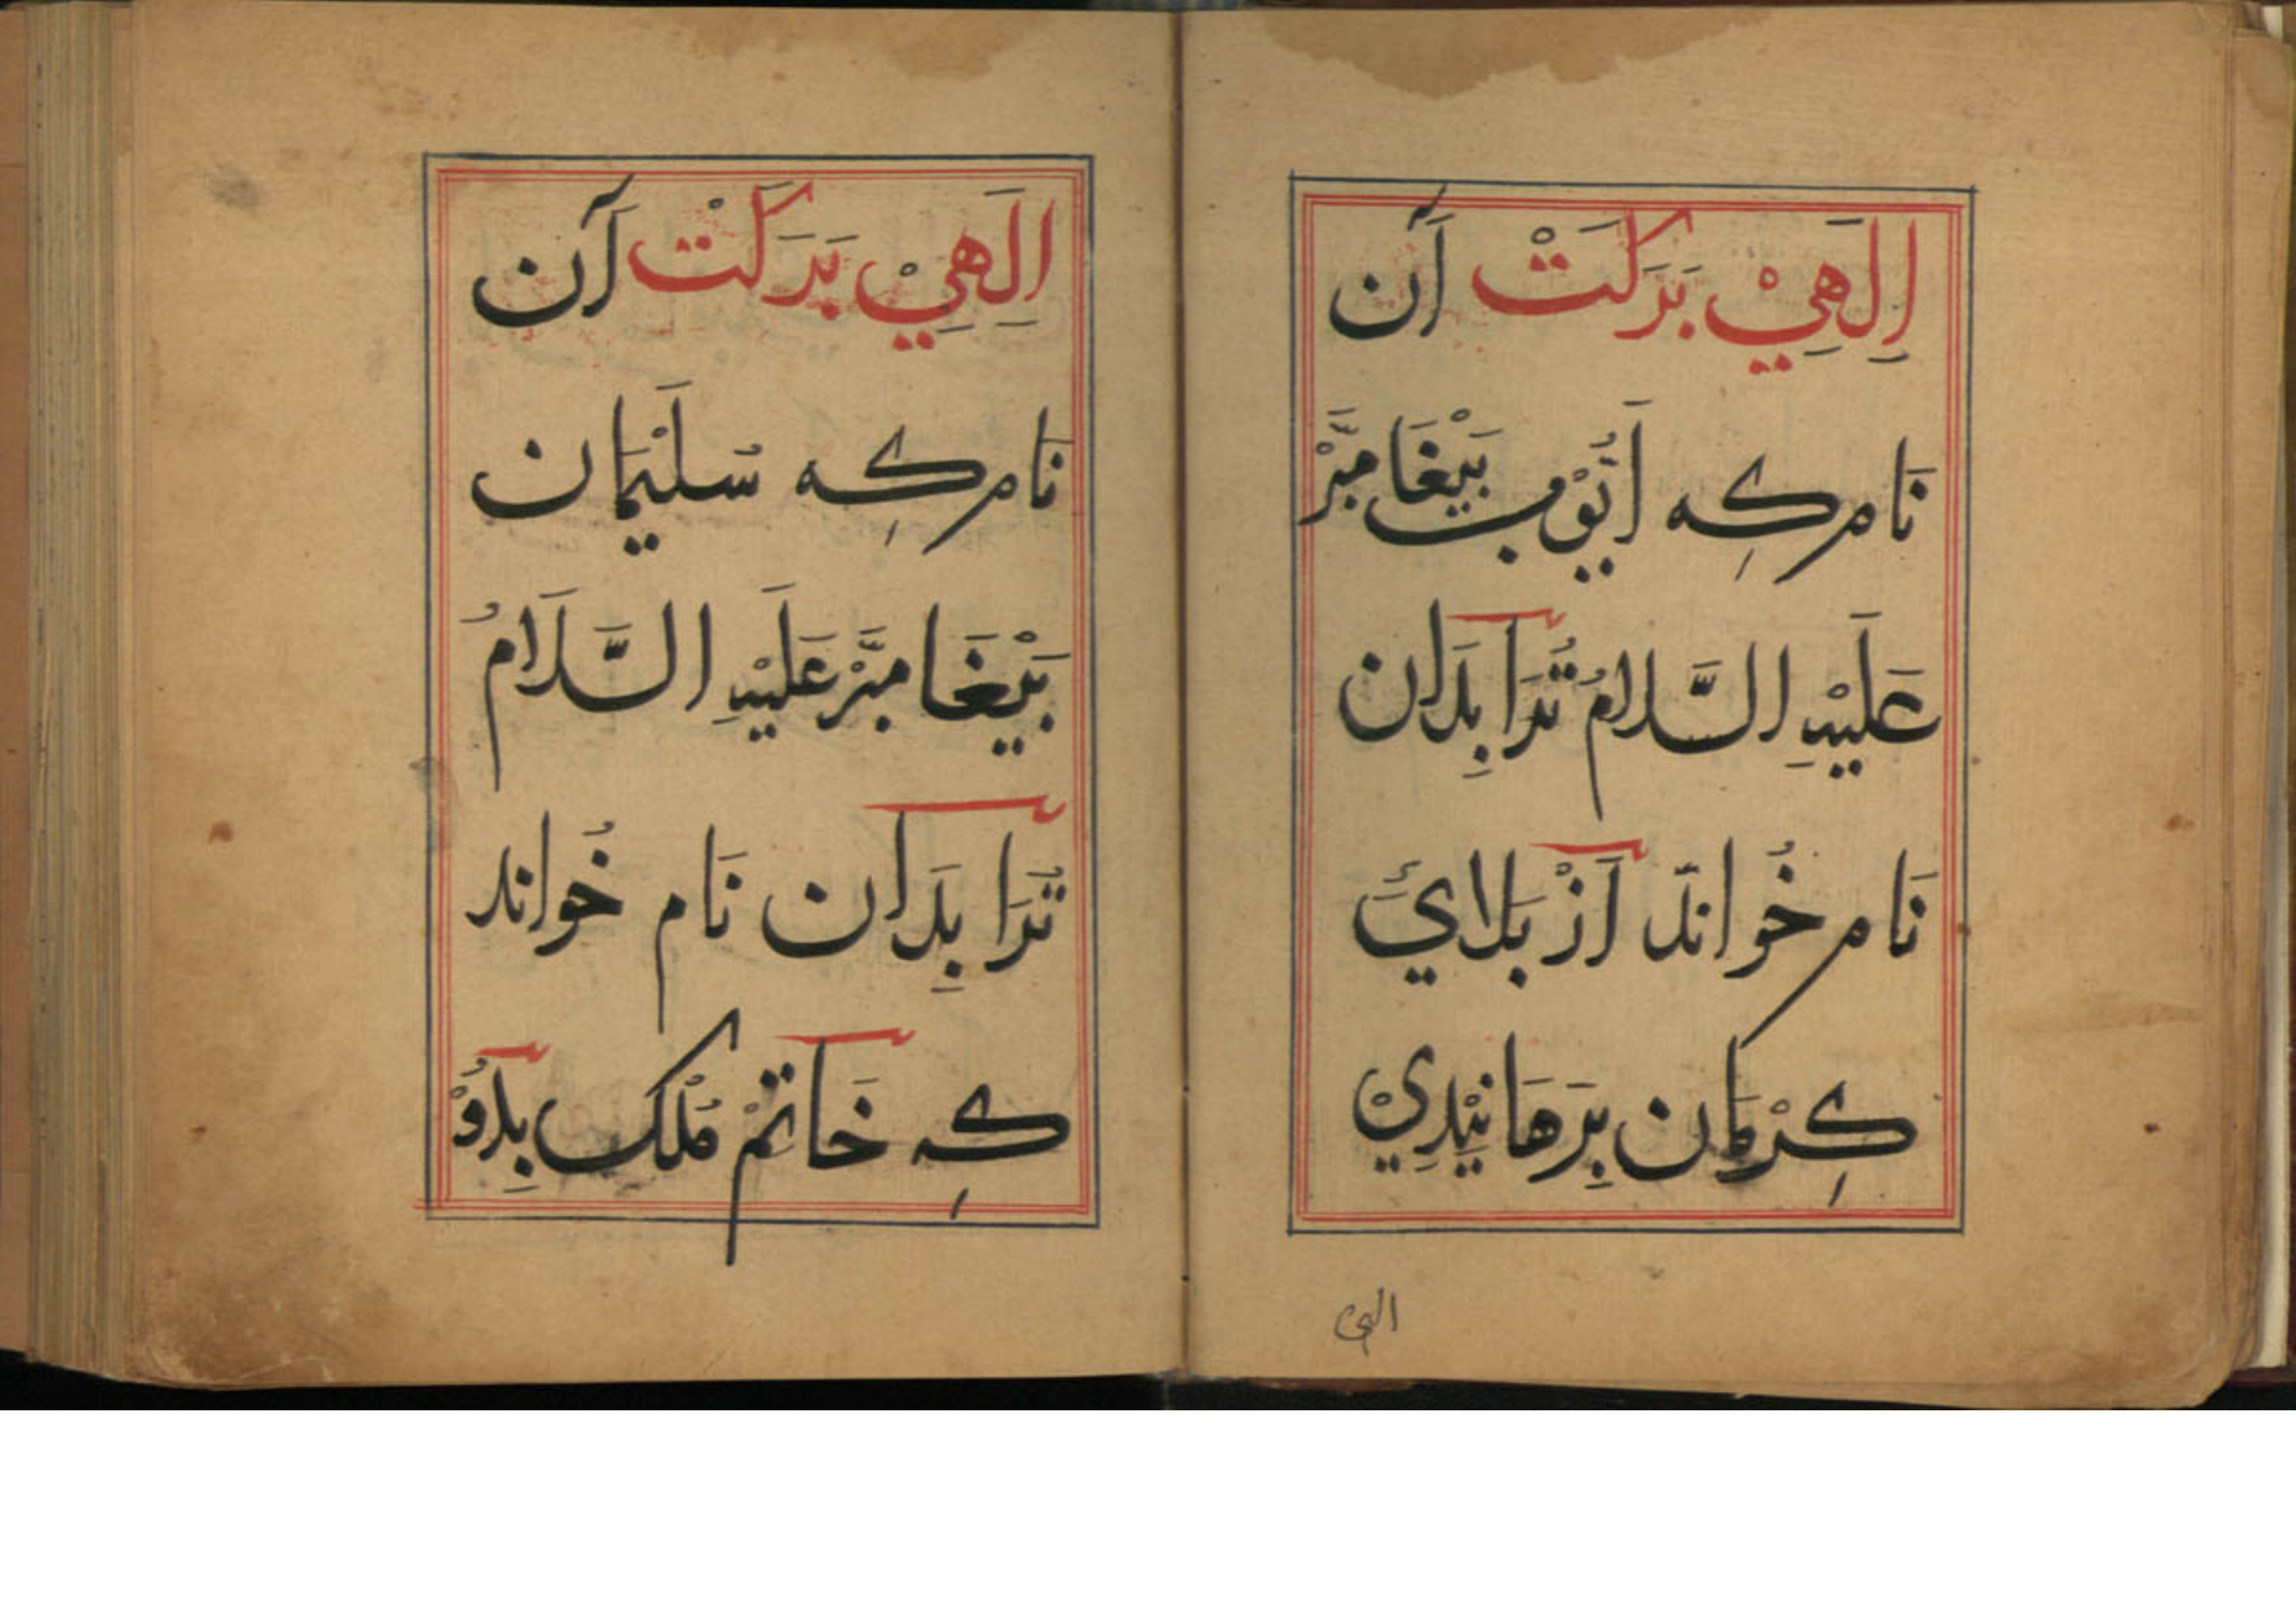 اِلَهِيْ بَبَرَكَتْ آن
نَام كِه اَيُّوْب بَيْغَامبَّرْ
عَلَيْهِ السَّلَامُ تُرَا بِدَان
نَام خُوانَد اَزْ بَلَايَ
كِرْمَان بِرَهَانِيْدِيْ
الهی
اِلَهِيْ بَبَرَكَتْ آن
نَام كِه سُلَيْمَان
بَيْغَامبَّرْ عَلَيْهِ السَّلَامُ
تُرَا بِدَان نَام خُواند
كِه خَاتَمْ مُلْك بِدُوْ